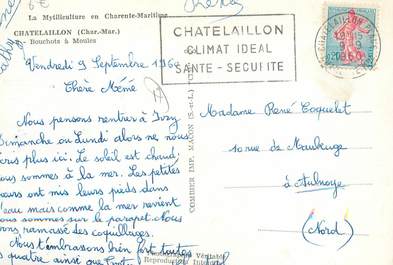 La Mytiliculture en Charente-Maritime
6€
CHATELAILLON (Char.-Mar.)
Bouchots à Moules
CHATELAILLON
CLIMAT IDEAL
SANTE - SECURITE
CHATELAILLON
Vendredi 9 Septembre 1960
Chère Mémé
Nous pensons rentrer à Ivry
Dimanche ou Lundi alors ne nous
écris plus ici. Le soleil est chaud,
nous sommes à la mer. Les petites
sœurs ont mis leurs pieds dans
l'eau mais comme la mer revient
nous sommes sur le parapet. Nous
avons ramassé des coquillages.
Nous t'embrassons bien fort toutes
les quatre ainsi que
COMBIER IMP. MACON (S.-et-L.)
Photographie Véritable
Reproduction Interdite
Madame René Coquelet
10 rue de Maubeuge
à Aulnoye
(Nord)